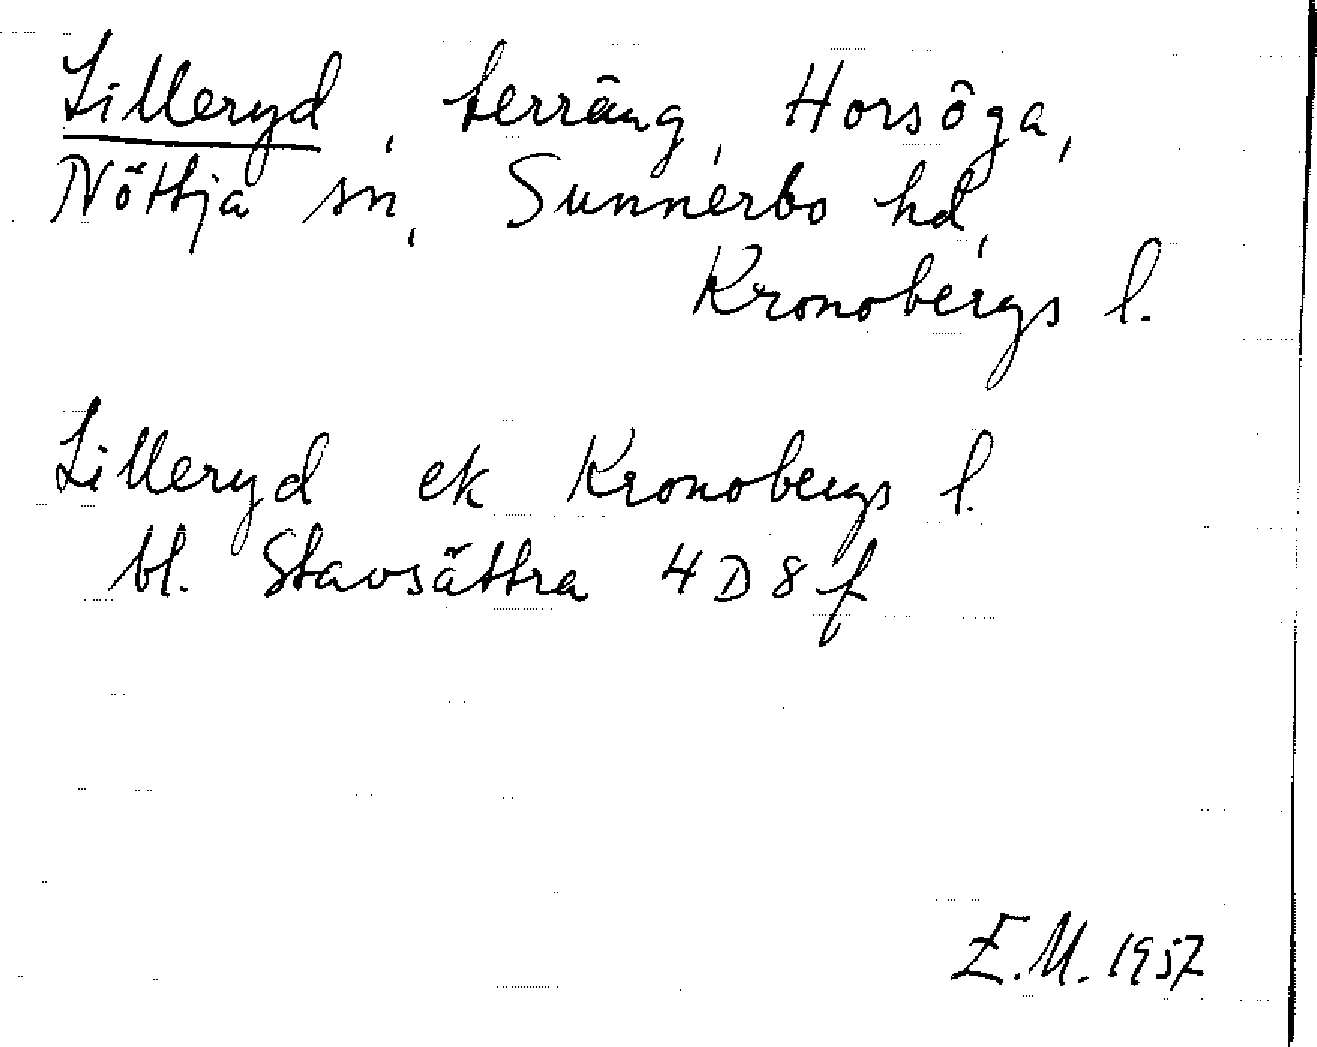 Lilleryd, terräng, Horsöga,
Nöttja sn, Sunnerbo hd,
Kronobergs l.
Lilleryd ek Kronobergs l.
bl. Stavsättra 4D8f
E.M. 1957